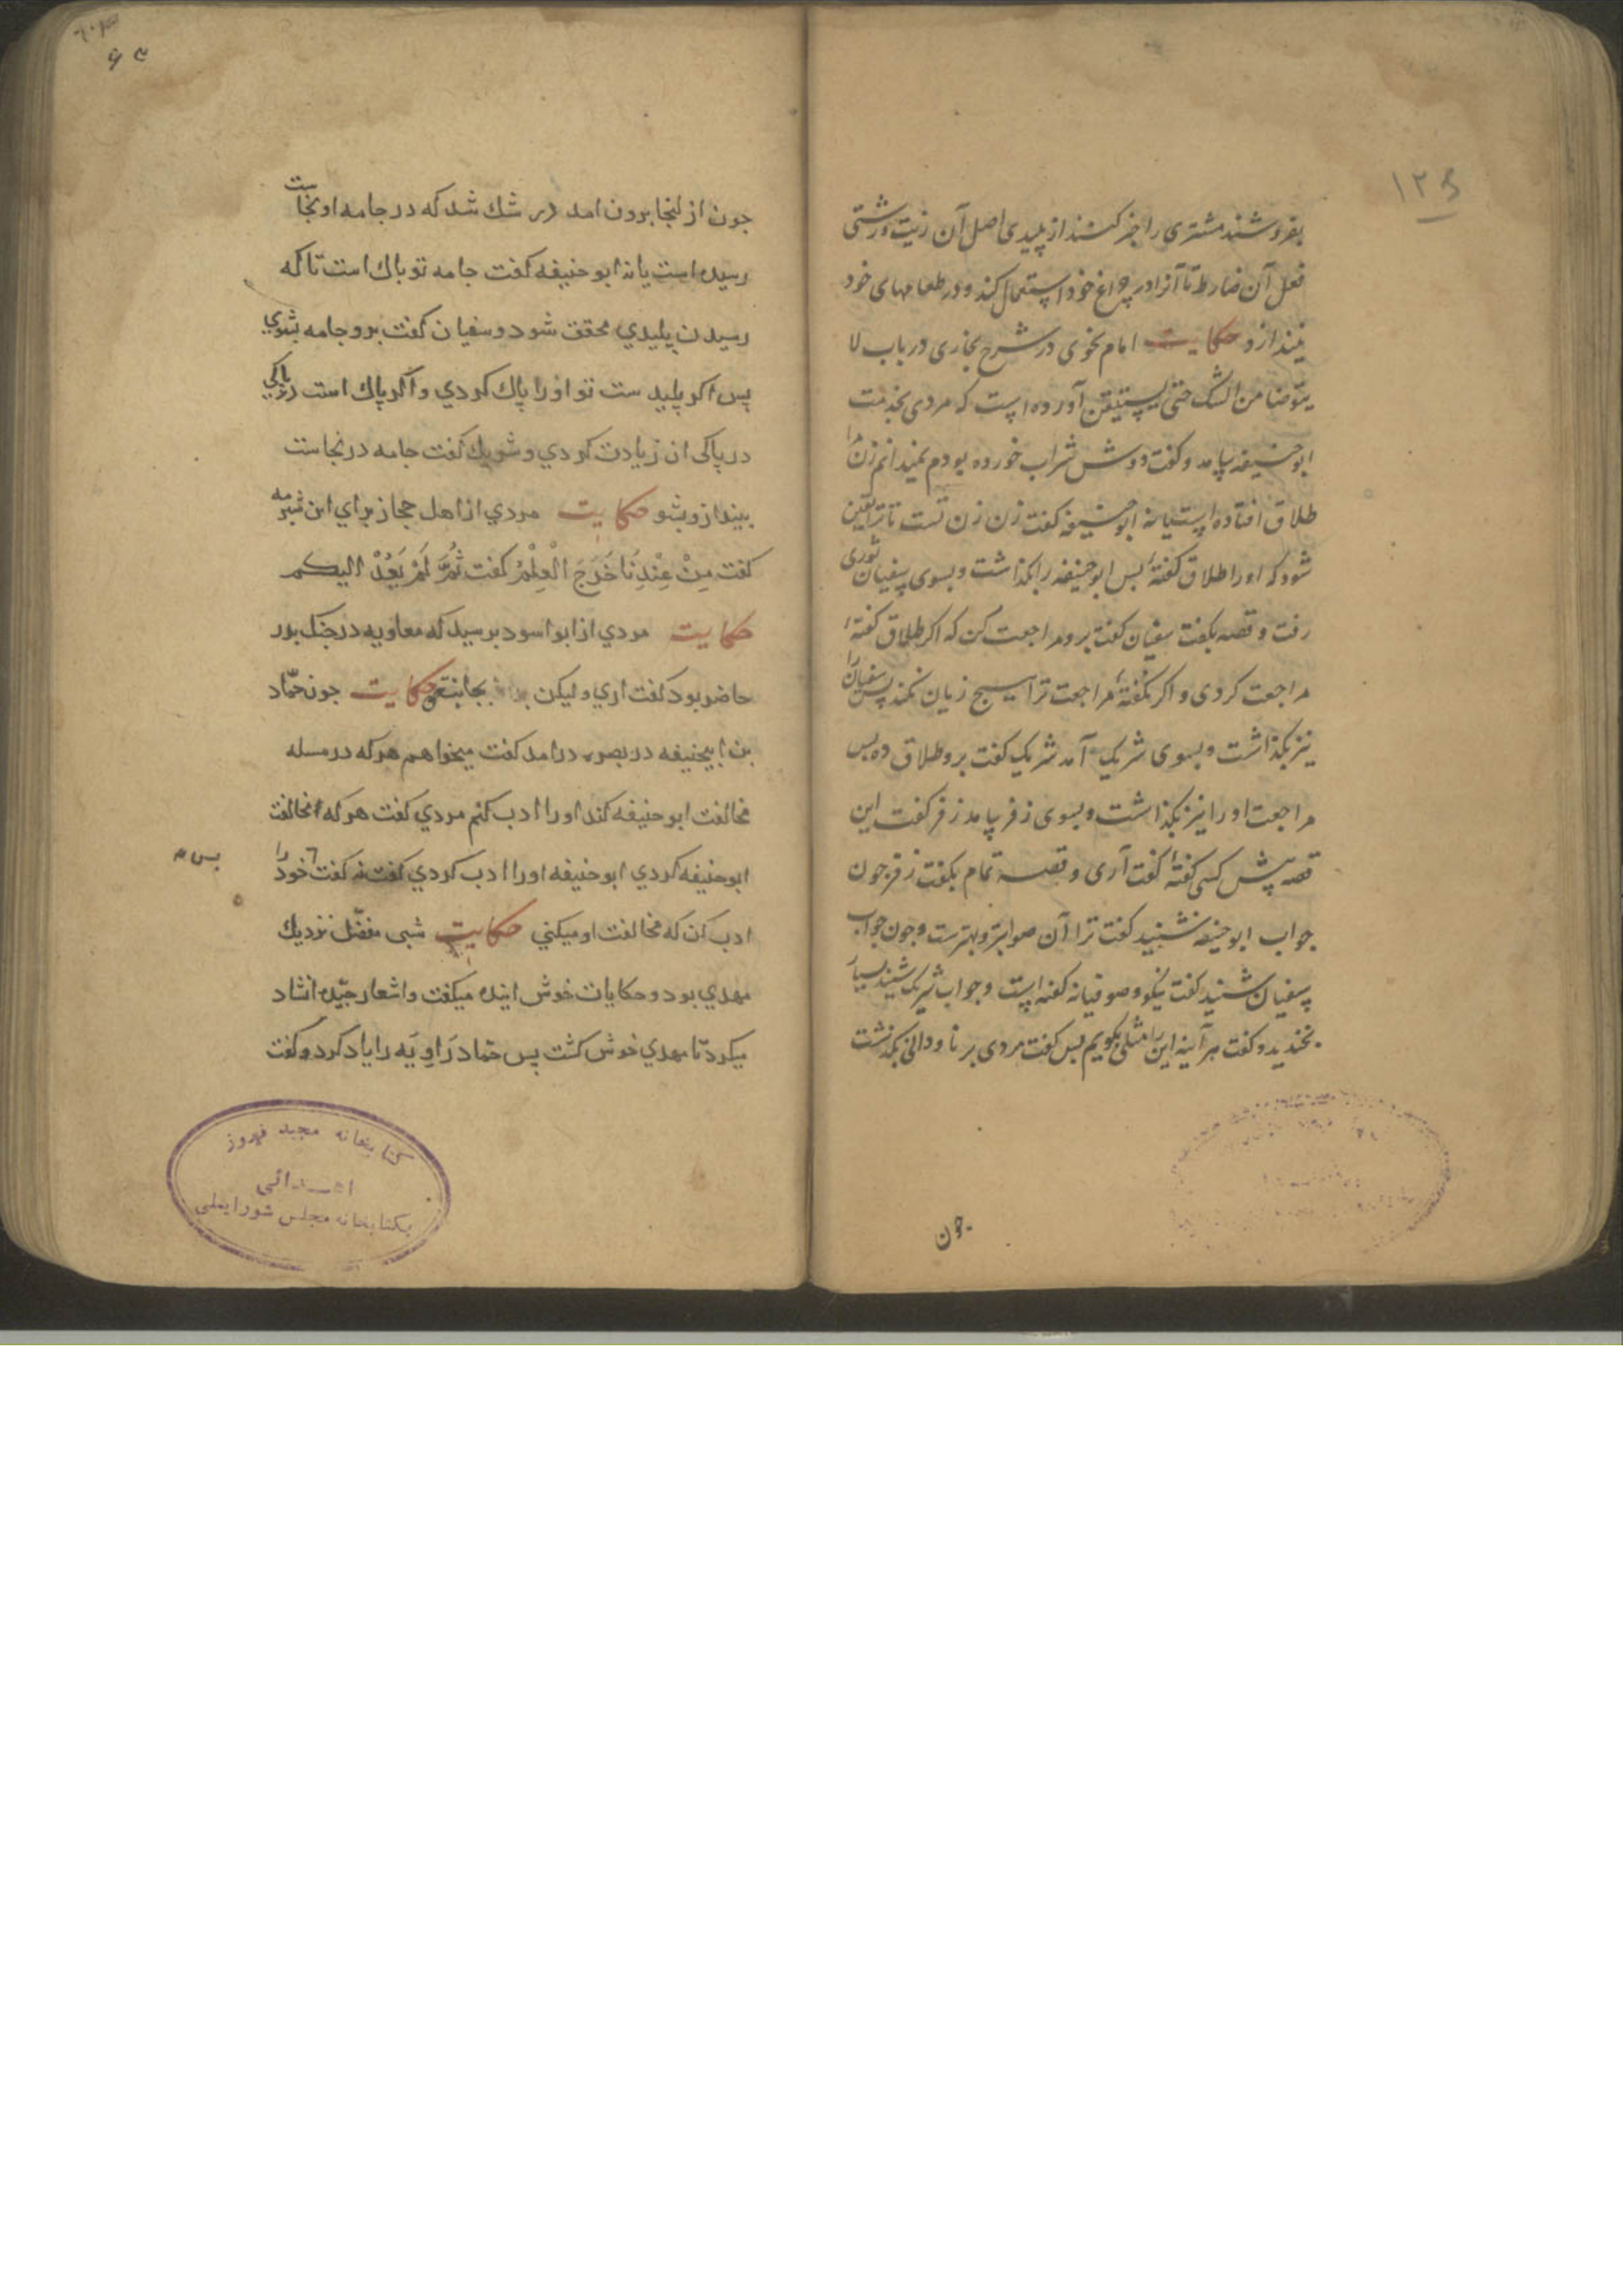 ۱۲۵
بفروشند مشتری را خبر کنند از پلیدی اصل آن زیت و زشتی
فعل آن ضارط تا آنرا در چراغ خود استعمال کند و در طعامهای خود
نیندازد حکایت امام نحوی در شرح بخاری در باب لا
یتوضا من الشک حتی یستیقن آورده است که مردی بخدمت
ابوحنیفه بیامد و گفت دوش شراب خورده بودم نمیدانم زن را
طلاق افتاده است یا نه ابوحنیفه گفت زن زن تست تا ترا یقین
شود که او را طلاق گفتهٔ بس ابوحنیفه را بگذاشت و بسوی سفیان ثوری
رفت و قصه بگفت سفیان گفت برو مراجعت کن که اگر طلاق گفتهٔ
مراجعت کردی و اگر نگفتهٔ مراجعت ترا هیچ زیان نکند پس سفیان را
نیز بگذاشت و بسوی شریک آمد شریک گفت برو طلاق ده بس
مراجعت او را نیز بگذاشت و بسوی زفر بیامد زفر گفت این
قصه پیش کسی گفتهٔ گفت آری و قصه تمام بگفت زفر جون
جواب ابوحنیفه شنید گفت ترا آن صوابتر و بهترست و جون جواب
سفیان شنید گفت نیکو و صوفیانه گفته است و جواب شریک شنید بسیار
بخندید و گفت هر آینه این را مثلی بگویم بس گفت مردی بر ناودانی بگذشت
جون
جون از انجا برون امد در شك شد که در جامه او نجاست
رسیده است یا نه ابو حنیفه کفت جامه تو باك است تا که
رسیدن پلیدي محقق شود و سفیان کفت برو جامه بشوي
پس اکر پلید ست تو او را پاك کردي و اکر پاك است پاکي
در پاکی ان زیادت کردي و شریك کفت جامه در نجاست
بینداز و بشو حکایت مردي از اهل حجاز براي ابن شبرمه
کفت مِنْ عِنْدِنَا خَرَجَ الْعِلْمُ کفت ثُمَّ لَمْ یَعُدْ الیکم
حکایت مردي از ابو اسود برسید که معاویه در جنك بدر
حاضر بود کفت اري و لیکن بجانبتی حکایت جون حمّاد
بن ابیحنیفه در بصره درامد کفت میخواهم هر که در مسله
مخالفت ابو حنیفه کند او را ادب کنم مردي کفت هر که مخالفت
ابوحنیفه کردي ابو حنیفه او را ادب کردي کفت نه کفت خود را
بس
ادب کن که مخالفت او میکني حکایت شبی مفضّل نزدیك
مهدي بود و حکایات خوش اینده میکفت و اشعار جیّده انشاد
میکرد تا مهدي خوش کشت پس حمّاد رَاوِیَه را یاد کرد و کفت
کتابخانه مجید فیروز
اهدائی
بکتابخانه مجلس شورایملی